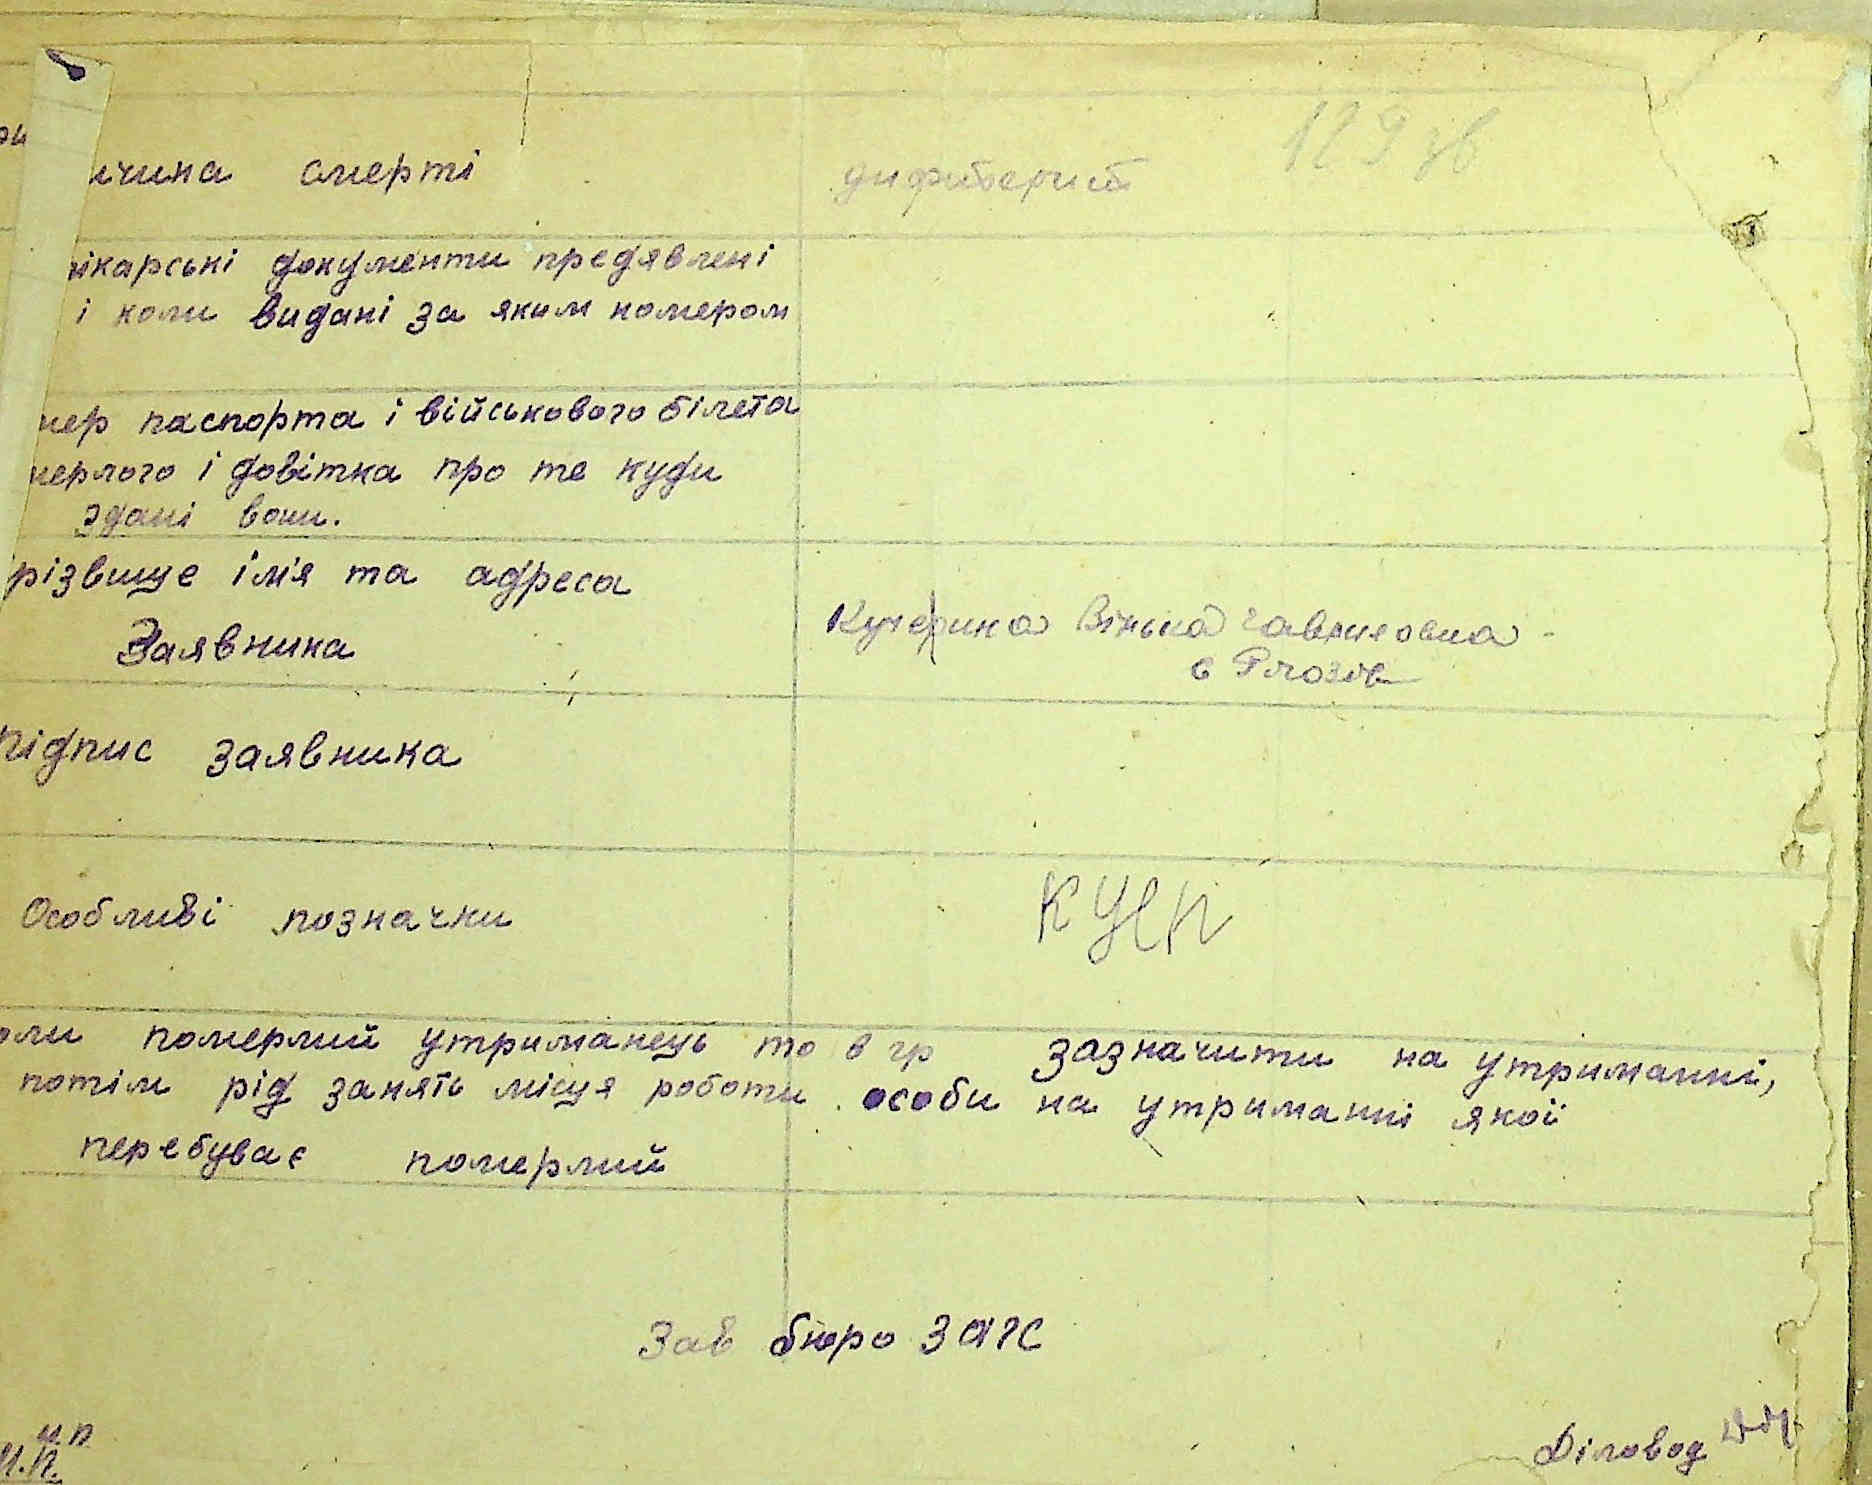 ри
ичина смерті дифтерит 129 зв
лікарські документи предявлені
і коли видані за яким номером
мер паспорта і військового білета
мерлого і довітка про те куди
здані вони.
різвище ім'я та адреса
Заявника Кучерина Гавриловна
с
Підпис заявника
Особливі позначки
оли помермий утриманець то в гр зазначити на утриманні,
потім рід занять місця роботи особи на утриманні якої
перебуває помермий
Зав бюро ЗАГС
м.п
М.П. Діловод